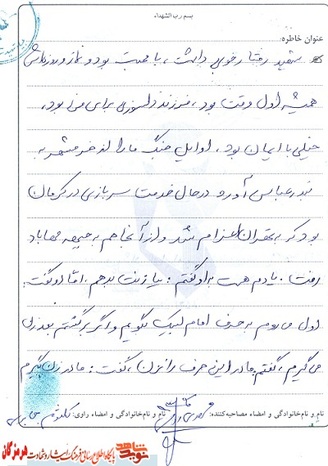 بسم رب الشهداء
عنوان خاطره:
شهید رفتار خوبی داشت، با محبت بود و نماز و
همیشه اول وقت بود، فرزند دلسوزی برای من بود،
خیلی با ایمان بود، اوایل جنگ ما را از خرمشهر به
بندرعباس آورد و در حال خدمت سربازی در کرمان
بود که به تهران اعزام شد و از آنجا هم به جبهه مهاباد
رفت. یادم هست به او گفتم: بیا زنت بدهم. اما او گفت:
اول می‌روم به حرف امام لبیک بگویم و اگر برگشتم بعد زن
می‌گیرم، گفتم: مادر این حرف را نزن، گفت: مادر زن بگیرم
نام و نام‌خانوادگی و امضاء مصاحبه‌کننده:
نام و نام‌خانوادگی و امضاء راوی:
نوید شاهد
پایگاه اطلاع رسانی فرهنگ ایثار و شهادت هرمزگان